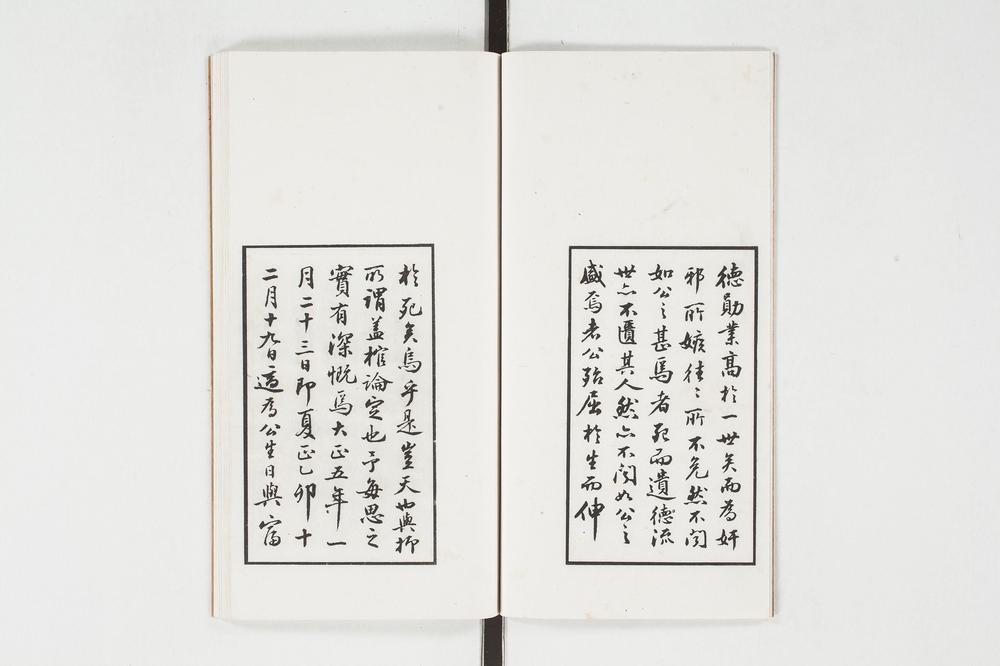 德勛業高於一世矣而為奸
邪所嫉往々所不免然不聞
如公之甚焉者死而遺德流
世亦不匱其人然亦不聞如公之
盛焉者公殆屈於生而伸
於死矣烏乎是豈天也與抑
所謂蓋棺論定也予每思之
實有深慨焉大正五年一
月二十三日即夏正乙卯十
二月十九日適為公生日與富